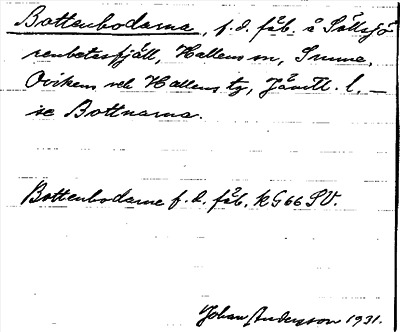 Bottenbodarna, f.d. fäb. å Sällsjö
renbetesfjäll, Hallens sn, Sunne,
Ovikens och Hallens tg, Jämtl. l. —
se Bottnarna.
Bottenbodarne f.d. fäb. KG66 SV.
Johan Andersson 1931.